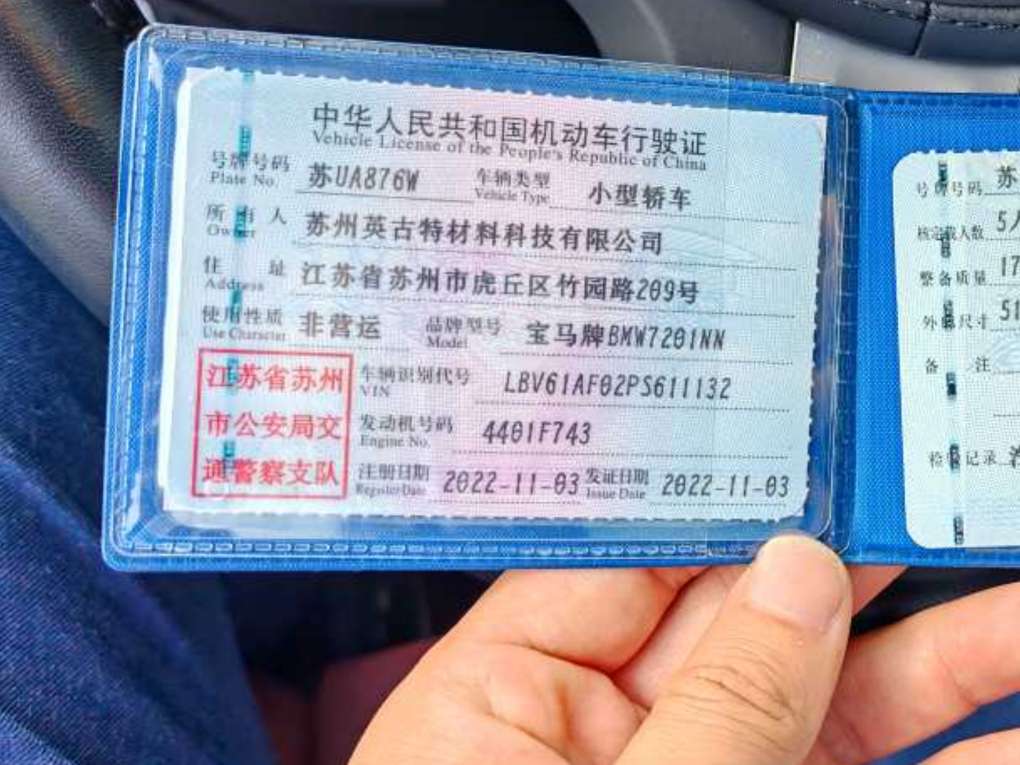 中华人民共和国机动车行驶证
Vehicle License of the People's Republic of China
号牌号码 苏UA876W 车辆类型 小型轿车
Plate No. Vehicle Type
所有人 苏州英古特材料科技有限公司
Owner
住址 江苏省苏州市虎丘区竹园路209号
Address
使用性质 非营运 品牌型号 宝马牌BMW7201NN
Use Character Model
江苏省苏州
市公安局交
通警察支队
车辆识别代号 LBV61AF02PS611132
VIN
发动机号码 4401F743
Engine No.
注册日期 2022-11-03 发证日期 2022-11-03
Register Date Issue Date
号牌号码 苏
核定载人数 5人
整备质量 17
外廓尺寸 51
备注
检验记录